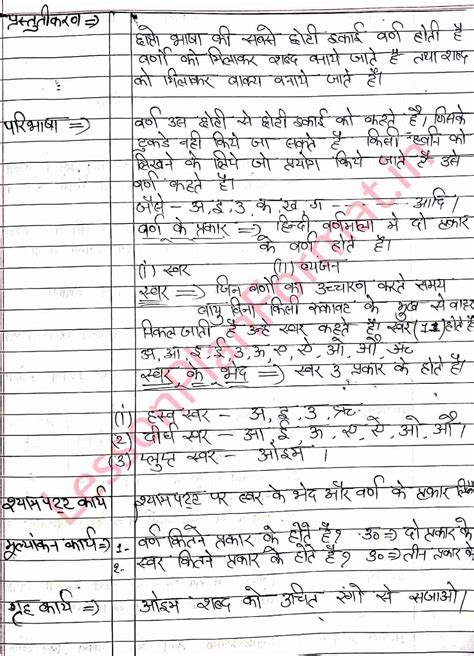 प्रस्तुतीकरण ⇒
छात्रो भाषा की सबसे छोटी इकाई वर्ण होती है
वर्णो को मिलाकर शब्द बनाये जाते है तथा शब्द
को मिलाकर वाक्य बनाये जाते है।
परिभाषा ⇒ वर्ण उस छोटी से छोटी इकाई को कहते है। जिसके
टुकडे नही किये जा सकते है किसी ध्वनि को
लिखने के लिये जो प्रयोग किये जाते है उसे
वर्ण कहते है।
जैसे - अ, इ, उ, क, ख, ग ------- आदि।
वर्ण के प्रकार ⇒ हिन्दी वर्णमाला मे दो प्रकार
के वर्ण होते है।
(i) स्वर (ii) व्यंजन
स्वर ⇒ जिन वर्णो का उच्चारण करते समय
वायु बिना किसी रुकावट के मुख से बाहर
निकल जाती है उन्हे स्वर कहते है। स्वर (11) होते है
अ, आ, इ, ई, उ, ऊ, ए, ऐ, ओ, औ, ऋ
स्वर के भेद ⇒ स्वर 3 प्रकार के होते है।
(1) हस्व स्वर - अ, इ, उ, ऋ
(2) दीर्घ स्वर - आ, ई, ऊ, ए, ऐ, ओ, औ।
(3) प्लुप्त स्वर - ओइम।
श्यामपट्ट कार्य श्यामपट्ट पर स्वर के भेद और वर्ण के प्रकार
मूल्यांकन कार्य ⇒ 1- वर्ण कितने प्रकार के होते है? उ० ⇒ दो प्रकार के
2- स्वर कितने प्रकार के होते है? उ० ⇒ तीन प्रकार के
गृह कार्य ⇒ ओइम शब्द को उचित रंगो से सजाओ।
LessonPlanFormat.in